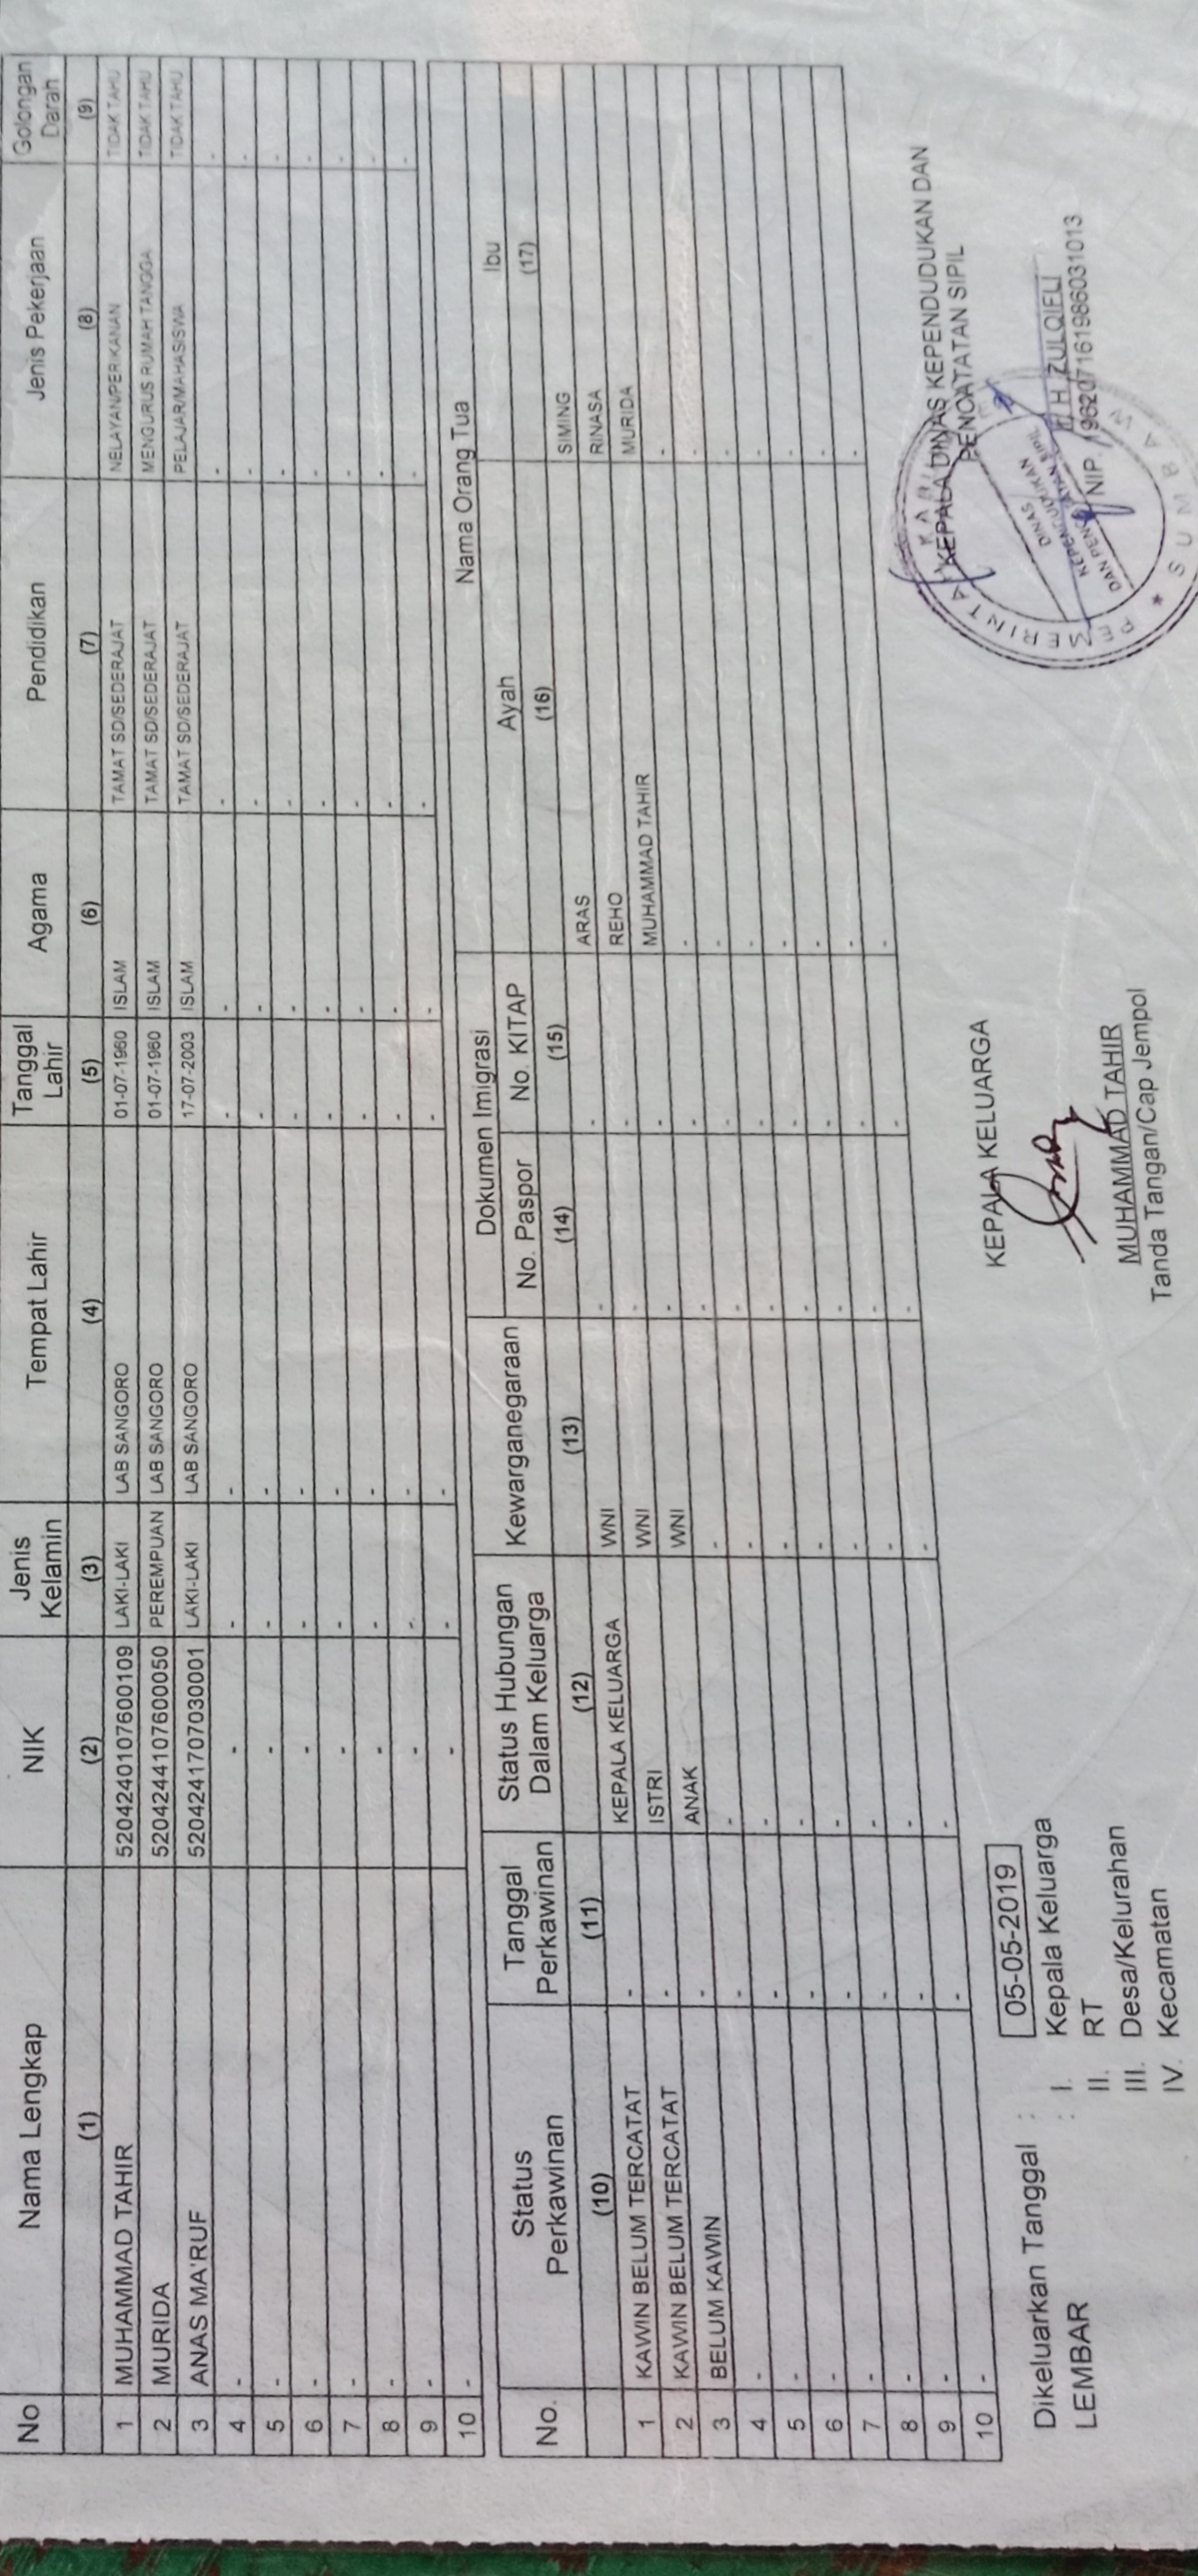 No Nama Lengkap NIK Jenis Kelamin Tempat Lahir Tanggal Lahir Agama Pendidikan Jenis Pekerjaan Golongan Darah
(1) (2) (3) (4) (5) (6) (7) (8) (9)
1 MUHAMMAD TAHIR 5204240107600109 LAKI-LAKI LAB SANGORO 01-07-1960 ISLAM TAMAT SD/SEDERAJAT NELAYAN/PERIKANAN TIDAK TAHU
2 MURIDA 5204244107600050 PEREMPUAN LAB SANGORO 01-07-1960 ISLAM TAMAT SD/SEDERAJAT MENGURUS RUMAH TANGGA TIDAK TAHU
3 ANAS MA'RUF 5204241707030001 LAKI-LAKI LAB SANGORO 17-07-2003 ISLAM TAMAT SD/SEDERAJAT PELAJAR/MAHASISWA TIDAK TAHU
4 - - - - - - - - -
5 - - - - - - - - -
6 - - - - - - - - -
7 - - - - - - - - -
8 - - - - - - - - -
9 - - - - - - - - -
10 - - - - - - - - -
No. Status Perkawinan Tanggal Perkawinan Status Hubungan Dalam Keluarga Kewarganegaraan Dokumen Imigrasi Nama Orang Tua
No. Paspor No. KITAP Ayah Ibu
(10) (11) (12) (13) (14) (15) (16) (17)
1 KAWIN BELUM TERCATAT - KEPALA KELUARGA WNI - - ARAS SIMING
2 KAWIN BELUM TERCATAT - ISTRI WNI - - REHO RINASA
3 BELUM KAWIN - ANAK WNI - - MUHAMMAD TAHIR MURIDA
4 - - - - - - - -
5 - - - - - - - -
6 - - - - - - - -
7 - - - - - - - -
8 - - - - - - - -
9 - - - - - - - -
10 - - - - - - - -
Dikeluarkan Tanggal : 05-05-2019
LEMBAR : I. Kepala Keluarga
II. RT
III. Desa/Kelurahan
IV. Kecamatan
KEPALA KELUARGA
MUHAMMAD TAHIR
Tanda Tangan/Cap Jempol
KEPALA DINAS KEPENDUDUKAN DAN
PENCATATAN SIPIL
H. ZULQIFLI
NIP. 196207161986031013
DINAS
KEPENDUDUKAN
DAN PENCATATAN SIPIL